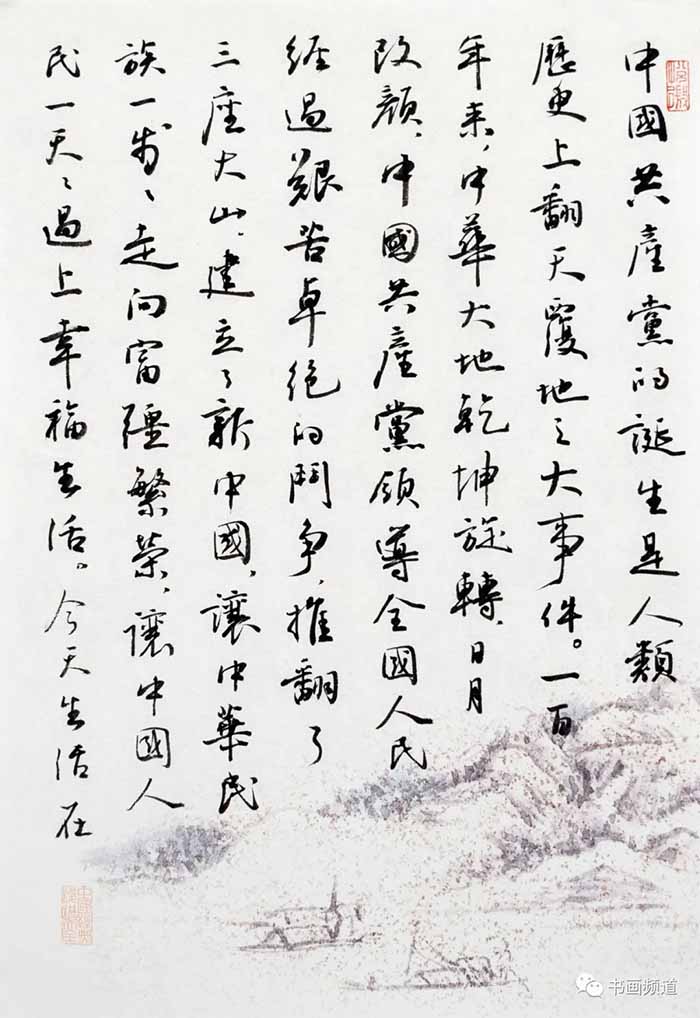 中國共產黨的誕生是人類
歷史上翻天覆地之大事件。一百
年来，中華大地乾坤旋轉、日月
改顏、中國共產黨領導全國人民
经過艱苦卓绝的鬥争，推翻了
三座大山，建立了新中國、讓中華民
族一步々走向富疆繁荣、讓中國人
民一天々過上幸福生活。今天生活在
书画频道